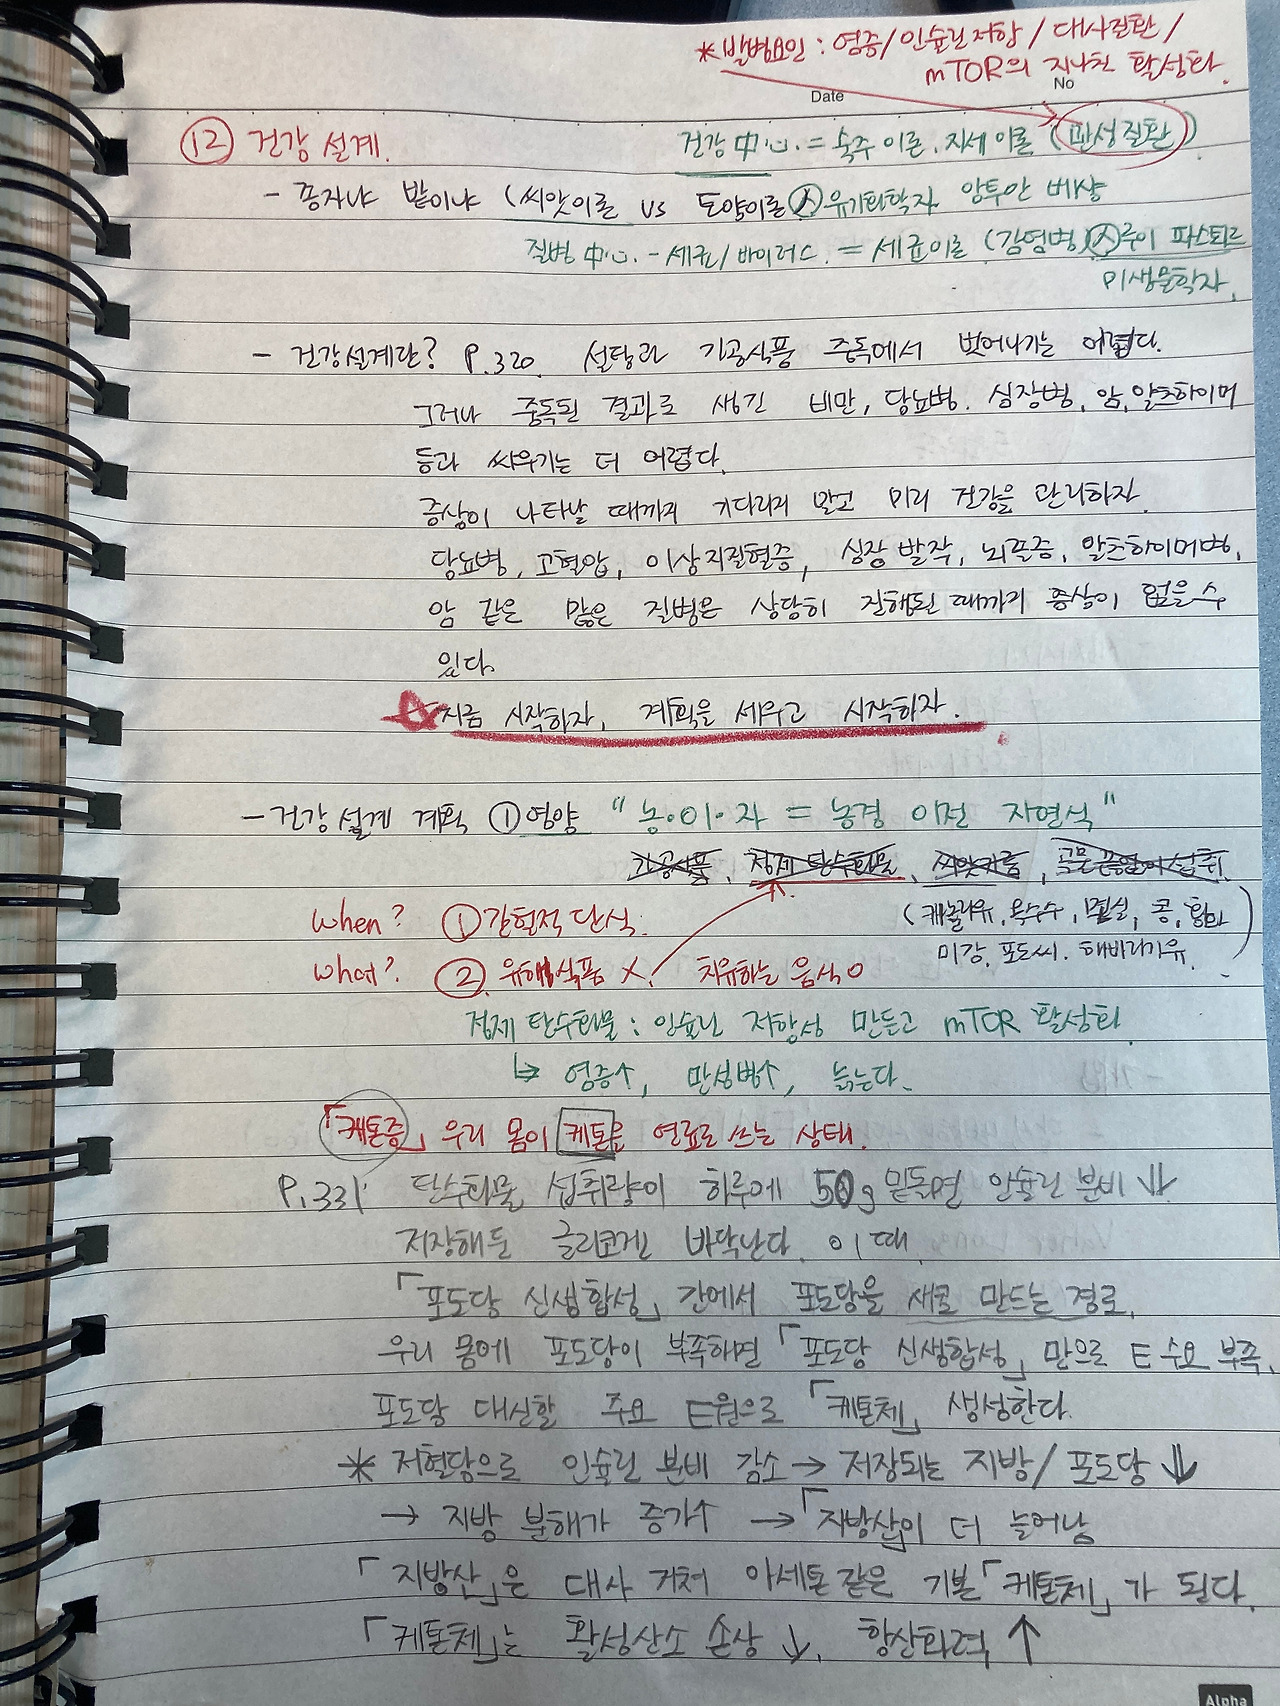 *발병요인 : 염증/인슐린저항/대사질환/
mTOR의 지나친 활성화.
Date
No
⑫ 건강 설계.
건강 中心. = 숙주 이론. 지세 이론 (만성질환)
- 종자냐 밭이냐 (씨앗이론 vs 토양이론 Ⓧ유기화학자 앙투안 베샹
질병 中心. - 세균/바이러스. = 세균이론 (감염병) Ⓧ루이 파스퇴르
미생물학자.
- 건강설계란? P.320. 설탕과 가공식품 중독에서 벗어나기는 어렵다.
그러나 중독된 결과로 생긴 비만, 당뇨병. 심장병, 암, 알츠하이머
등과 싸우기는 더 어렵다.
증상이 나타날 때까지 기다리지 말고 미리 건강을 관리하자.
당뇨병, 고혈압, 이상지질혈증, 심장 발작, 뇌졸중, 알츠하이머병,
암 같은 많은 질병은 상당히 진행된 때까지 증상이 없을 수
있다.
☆지금 시작하자, 계획을 세우고 시작하자.
- 건강 설계 계획 ① 영양 "농·이·자 = 농경 이전 자연식"
가공식품, 정제 탄수화물, 씨앗기름, 섭취.
when? ① 간헐적 단식.
(카놀라유, 옥수수, 면실, 콩, 홍화
what? ② 유해식품 X. 치유하는 음식 O
미강, 포도씨. 해바라기유.)
정제 탄수화물 : 인슐린 저항성 만들고 mTOR 활성화.
↳ 염증↑, 만성병↑, 늙는다.
「케톤증」 우리 몸이 케톤을 연료로 쓰는 상태.
P.331. 탄수화물 섭취량이 하루에 50g 밑돌면 인슐린 분비 ↓↓.
저장해둔 글리코겐 바닥난다. 이때
「포도당 신생합성」 간에서 포도당을 새로 만드는 경로.
우리 몸에 포도당이 부족하면 「포도당 신생합성」 만으로 E 수요 부족.
포도당 대신할 주요 E원으로 「케톤체」 생성한다.
* 저혈당으로 인슐린 분비 감소 → 저장되는 지방/포도당 ↓↓
→ 지방 분해가 증가↑ → 「지방산」이 더 늘어남
「지방산」은 대사 거쳐 아세톤 같은 기본 「케톤체」가 된다.
「케톤체」는 활성산소 손상 ↓, 항산화력 ↑
Alpha